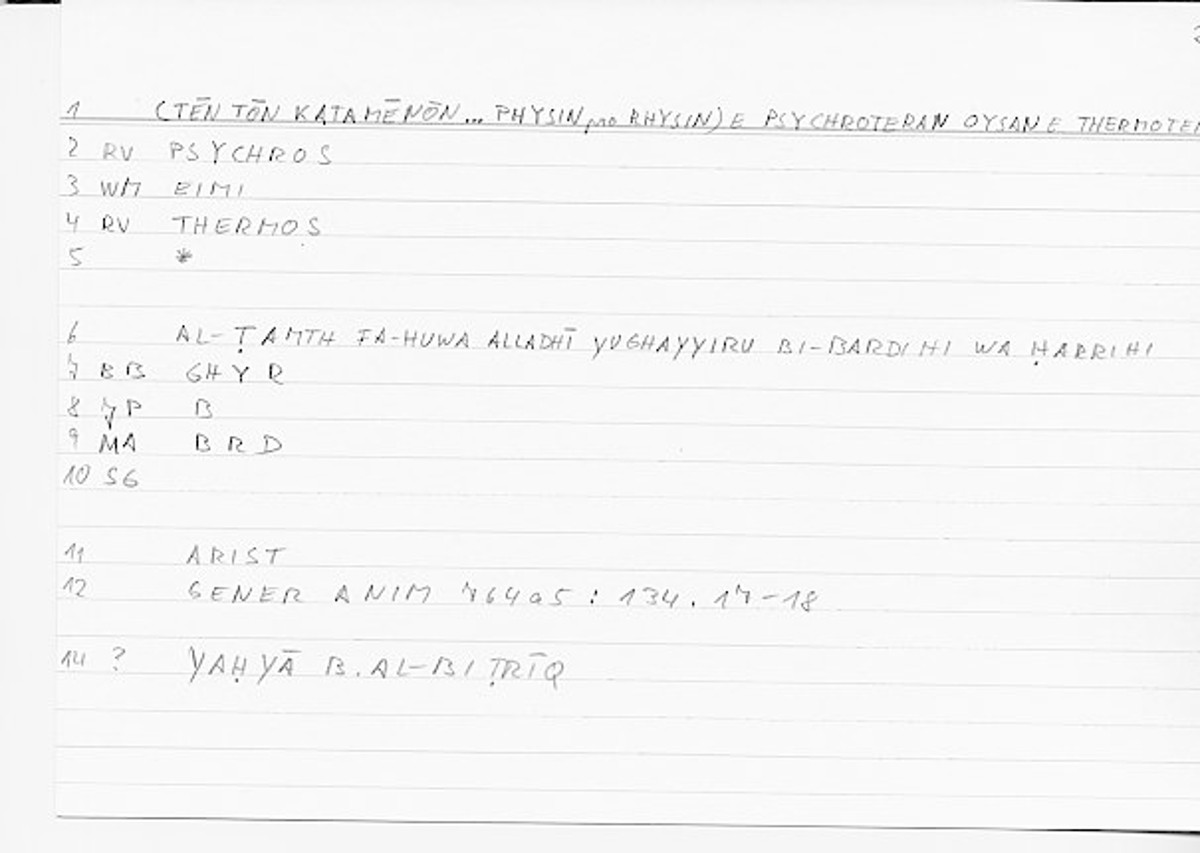 1 (TĒN TŌN KATAMĒNŌN... PHYSIN pro RHYSIN) E PSYCHROTERAN OYSAN E THERMOTE
2 RV PSYCHROS
3 WM EIMI
4 RV THERMOS
5 *
6 AL-ṬAMTH FA-HUWA ALLADHĪ YUGHAYYIRU BI-BARDIHI WA ḤARRIHI
7 BB GHYR
8 7P B
9 MA BRD
10 SG
11 ARIST
12 GENER ANIM 764a5 : 134.17-18
14 ? YAḤYĀ B.AL-BIṬRĪQ